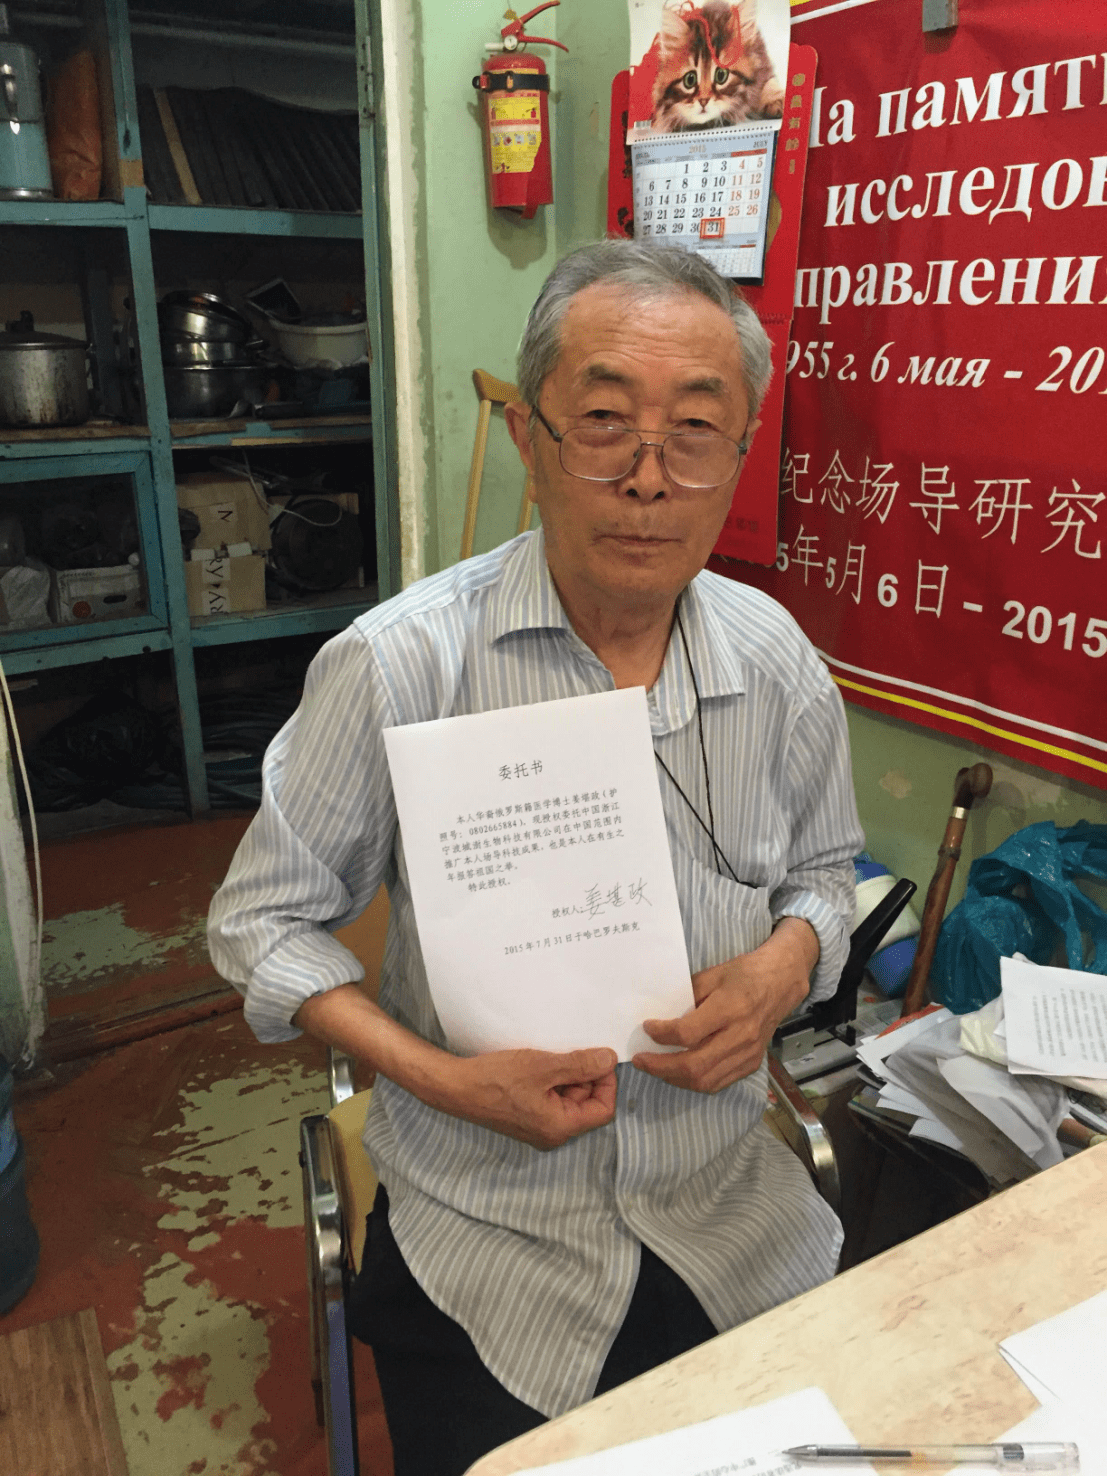 На память
исследов
правлени
955 г. 6 мая - 201
纪念场导研究
5年5月6日 - 2015
2015
1 2 3 4 5
6 7 8 9 10 11 12
13 14 15 16 17 18 19
20 21 22 23 24 25 26
27 28 29 30 31
委托书
本人华裔俄罗斯籍医学博士姜堪政（护
照号：0802665884），现授权委托中国浙江
宁波城谢生物科技有限公司在中国范围内
推广本人场导科技成果，也是本人在有生之
年报答祖国之举。
特此授权。
授权人：姜堪政
2015年7月31日于哈巴罗夫斯克